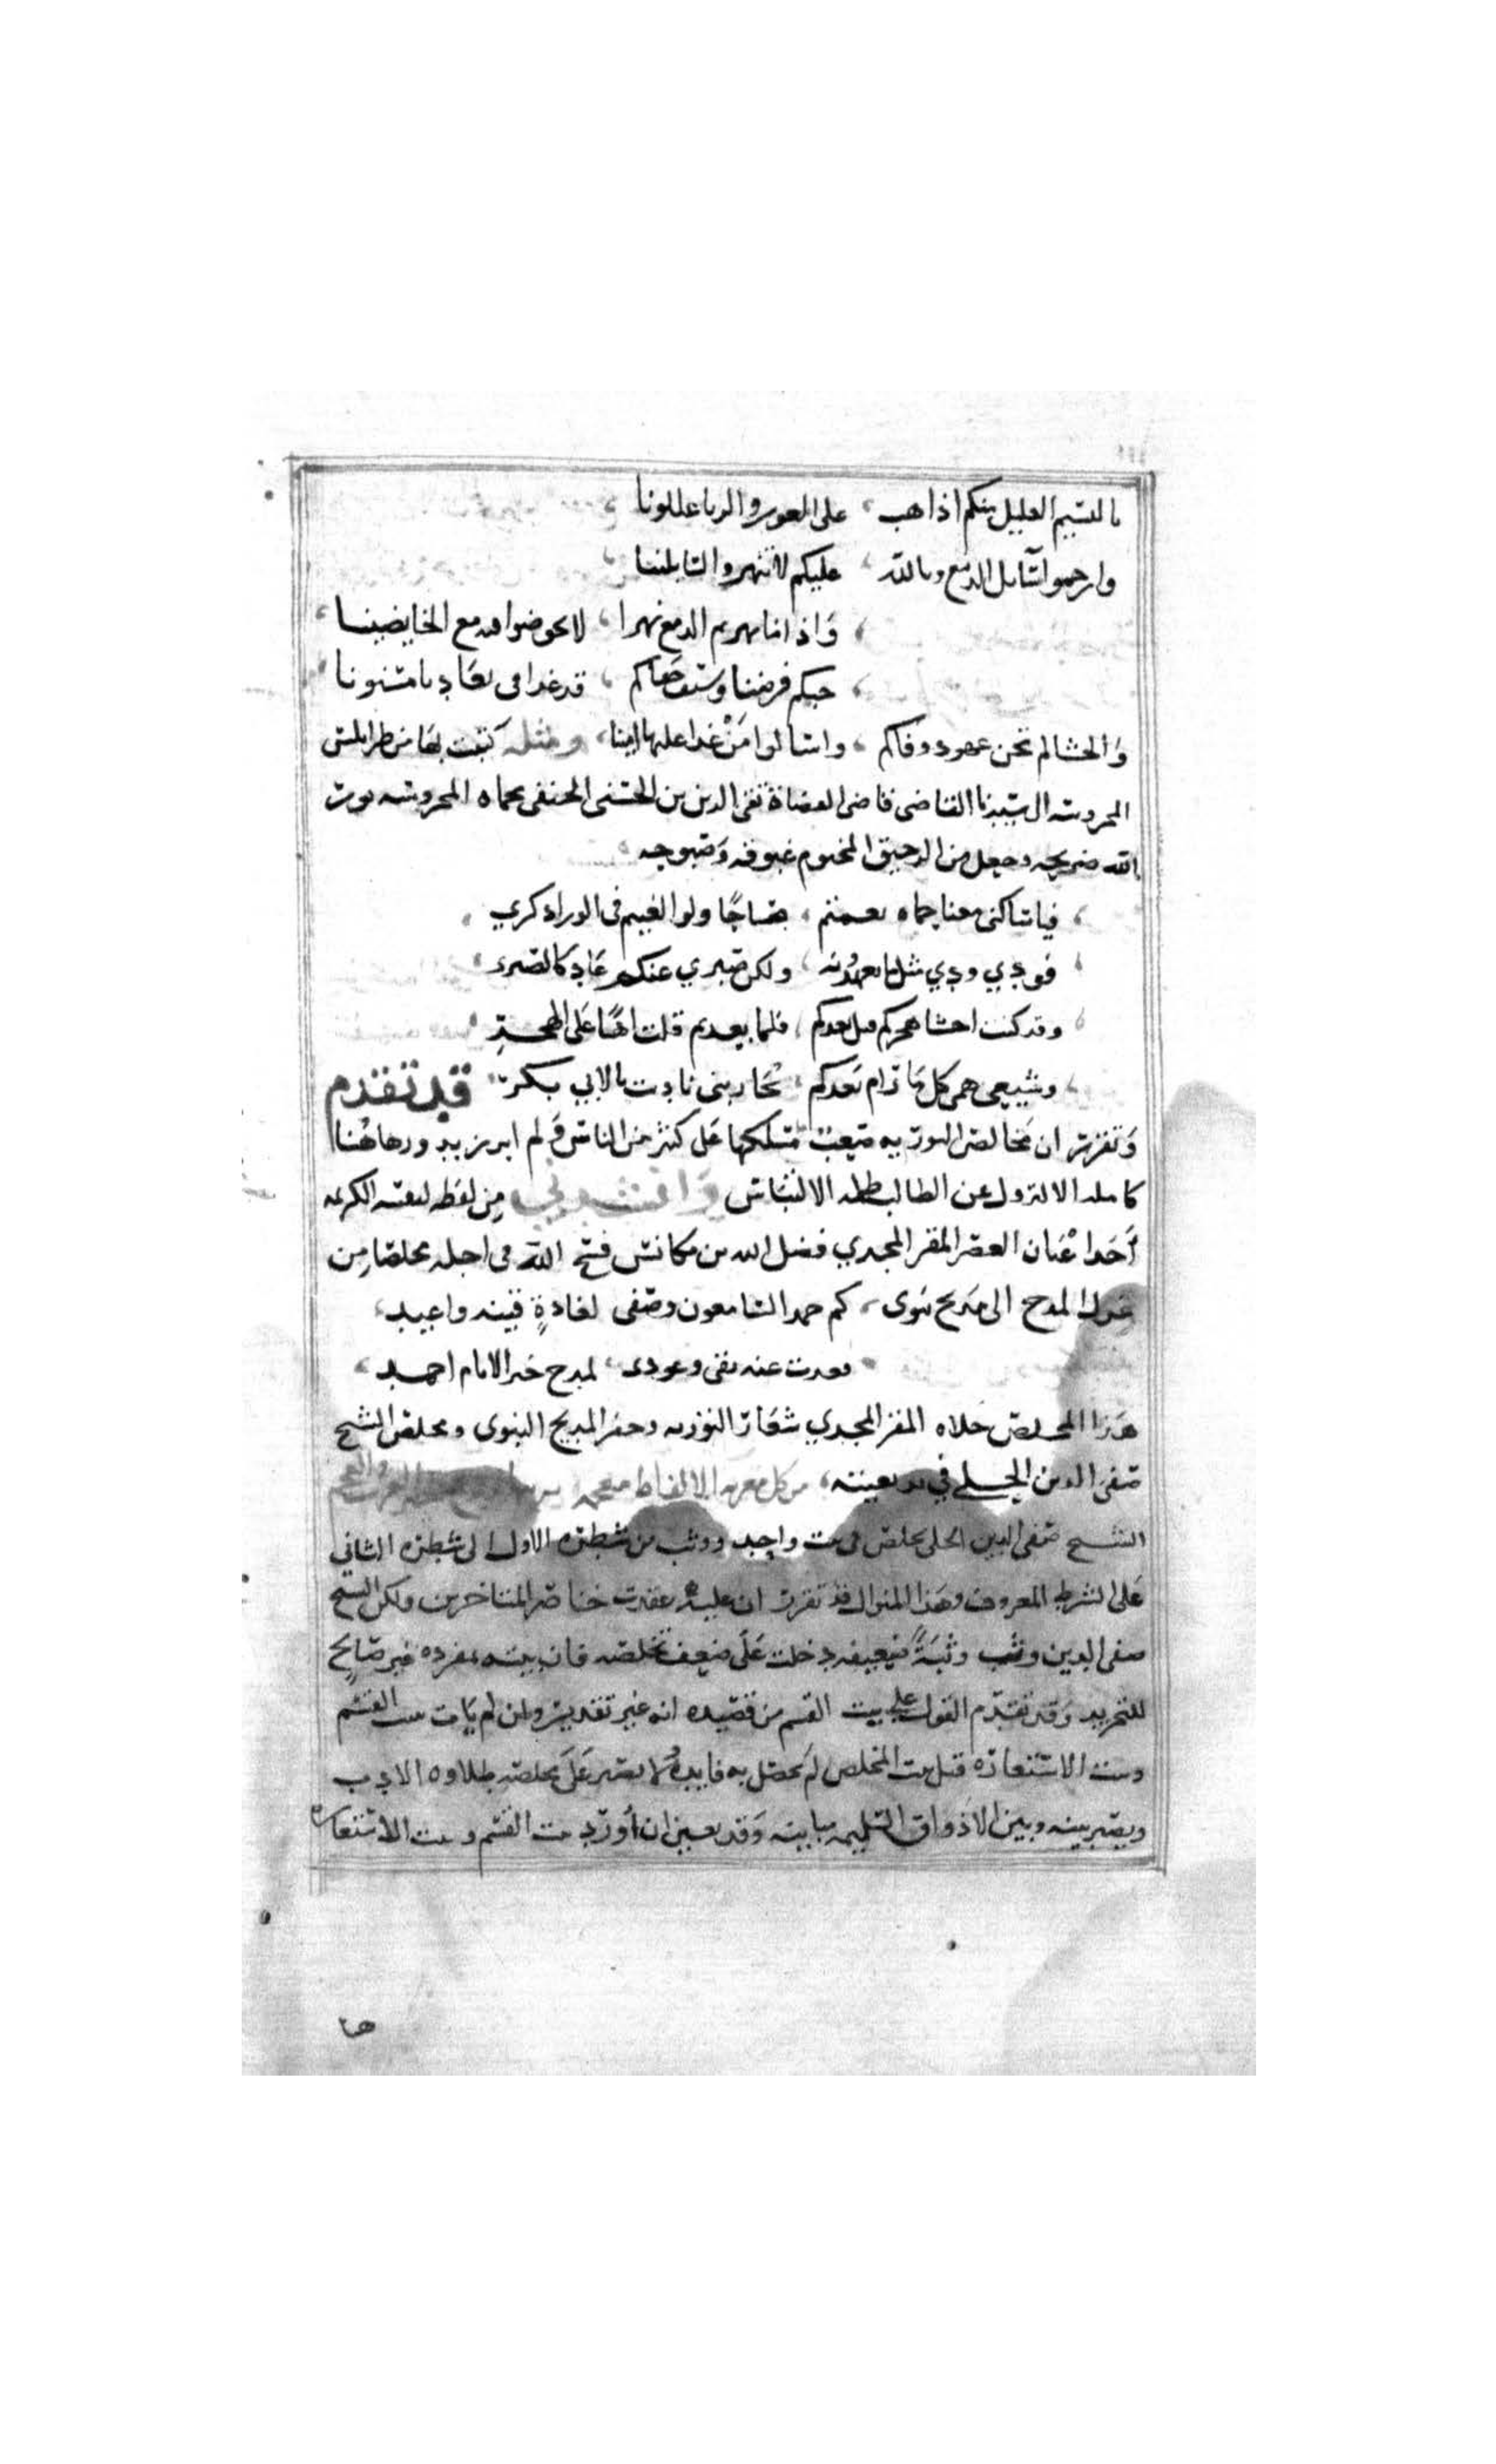 بالنسيم العليل منكم اذا هب على الغور والربا عللونا
وارحموا سايل الدمع وبالله عليكم لا تنهروا السايلينا
واذا ما نهرتم الدمع نهرا لا تخوضوا فيه مع الخايضينا
حبكم فرضنا وسيف جفاكم قد غدا في بعاد نا مسنونا
والحشا لم تخن عهود وفاكم واسالوا من غدا عليها امينا ومثله كتبت بها من طرابلس
المحروسه الى سيدنا القاضي قاضي القضاة تقي الدين بن الحسني الحنفي بحماه المحروسه نور
الله ضريحه وجعل من الرحيق المختوم غبوقه وصبوحه
فيا ساكني مغنا حماه نعمتم صباحا ولو الفيتم في الورا ذكري
فودي ودي مثل ما تعهدونه ولكن صبري عنكم عاد كالصبر
وقد كنت اخشا هجركم قبل بعدكم فلما بعدتم قلت اها على الهجر
وشيعي همي كل ما رام بعدكم يحاربني ناديت يال ابي بكر قد تقدم
وتقرر ان مخالص النور به صعبت مسلكها على كثير من الناس ولم ابرز بديورها هنا
كامله الا لتزول عن الطالب ظلمة الالتباس وانشدني من لفظه لنفسه الكريمه
احد اعيان العصر المقر المجدي فضل الله بن مكانس فسح الله في اجله مخلصا من
غزل المدح الى مديح نبوى كم حمد السامعون وصفى لغادةٍ قينه واغيد
فعدت عنه بقى وعودى لمدح خير الانام احمد
هذا المخلص حلاه المقر المجدي شعار التوريه وحفر المديح النبوى ومخلص الشيخ
صفى الدين الحلي في بديعيته من كل معرب الالفاظ معجمه يزينها مدح خير العرب والعجم
الشيخ صفى الدين الحلي تخلص في بيت واحد ووثب من شطره الاول الى شطره الثاني
على الشرط المعروف وهذا المنوال قد تقرر ان عليه عقدت خناصر المتاخرين ولكن الشيخ
صفى الدين وثب وثبة ضعيفه دخلت على ضعيف تخلصه فان بيته بمفرده غير صالح
للتجريد وقد تقدم القول على بيت القسم من قصيده انه غير تقديره وان لم يات ببيت القسم
وبيت الاستعاره قبل بيت المخلص لم تحصل به فايده ولا يصير على مخلصه طلاوة الادب
ويصير بينه وبين الاذواق السليمه مباينه وقد تعين ان أورد بيت القسم وبيت الاستعاره
هنا